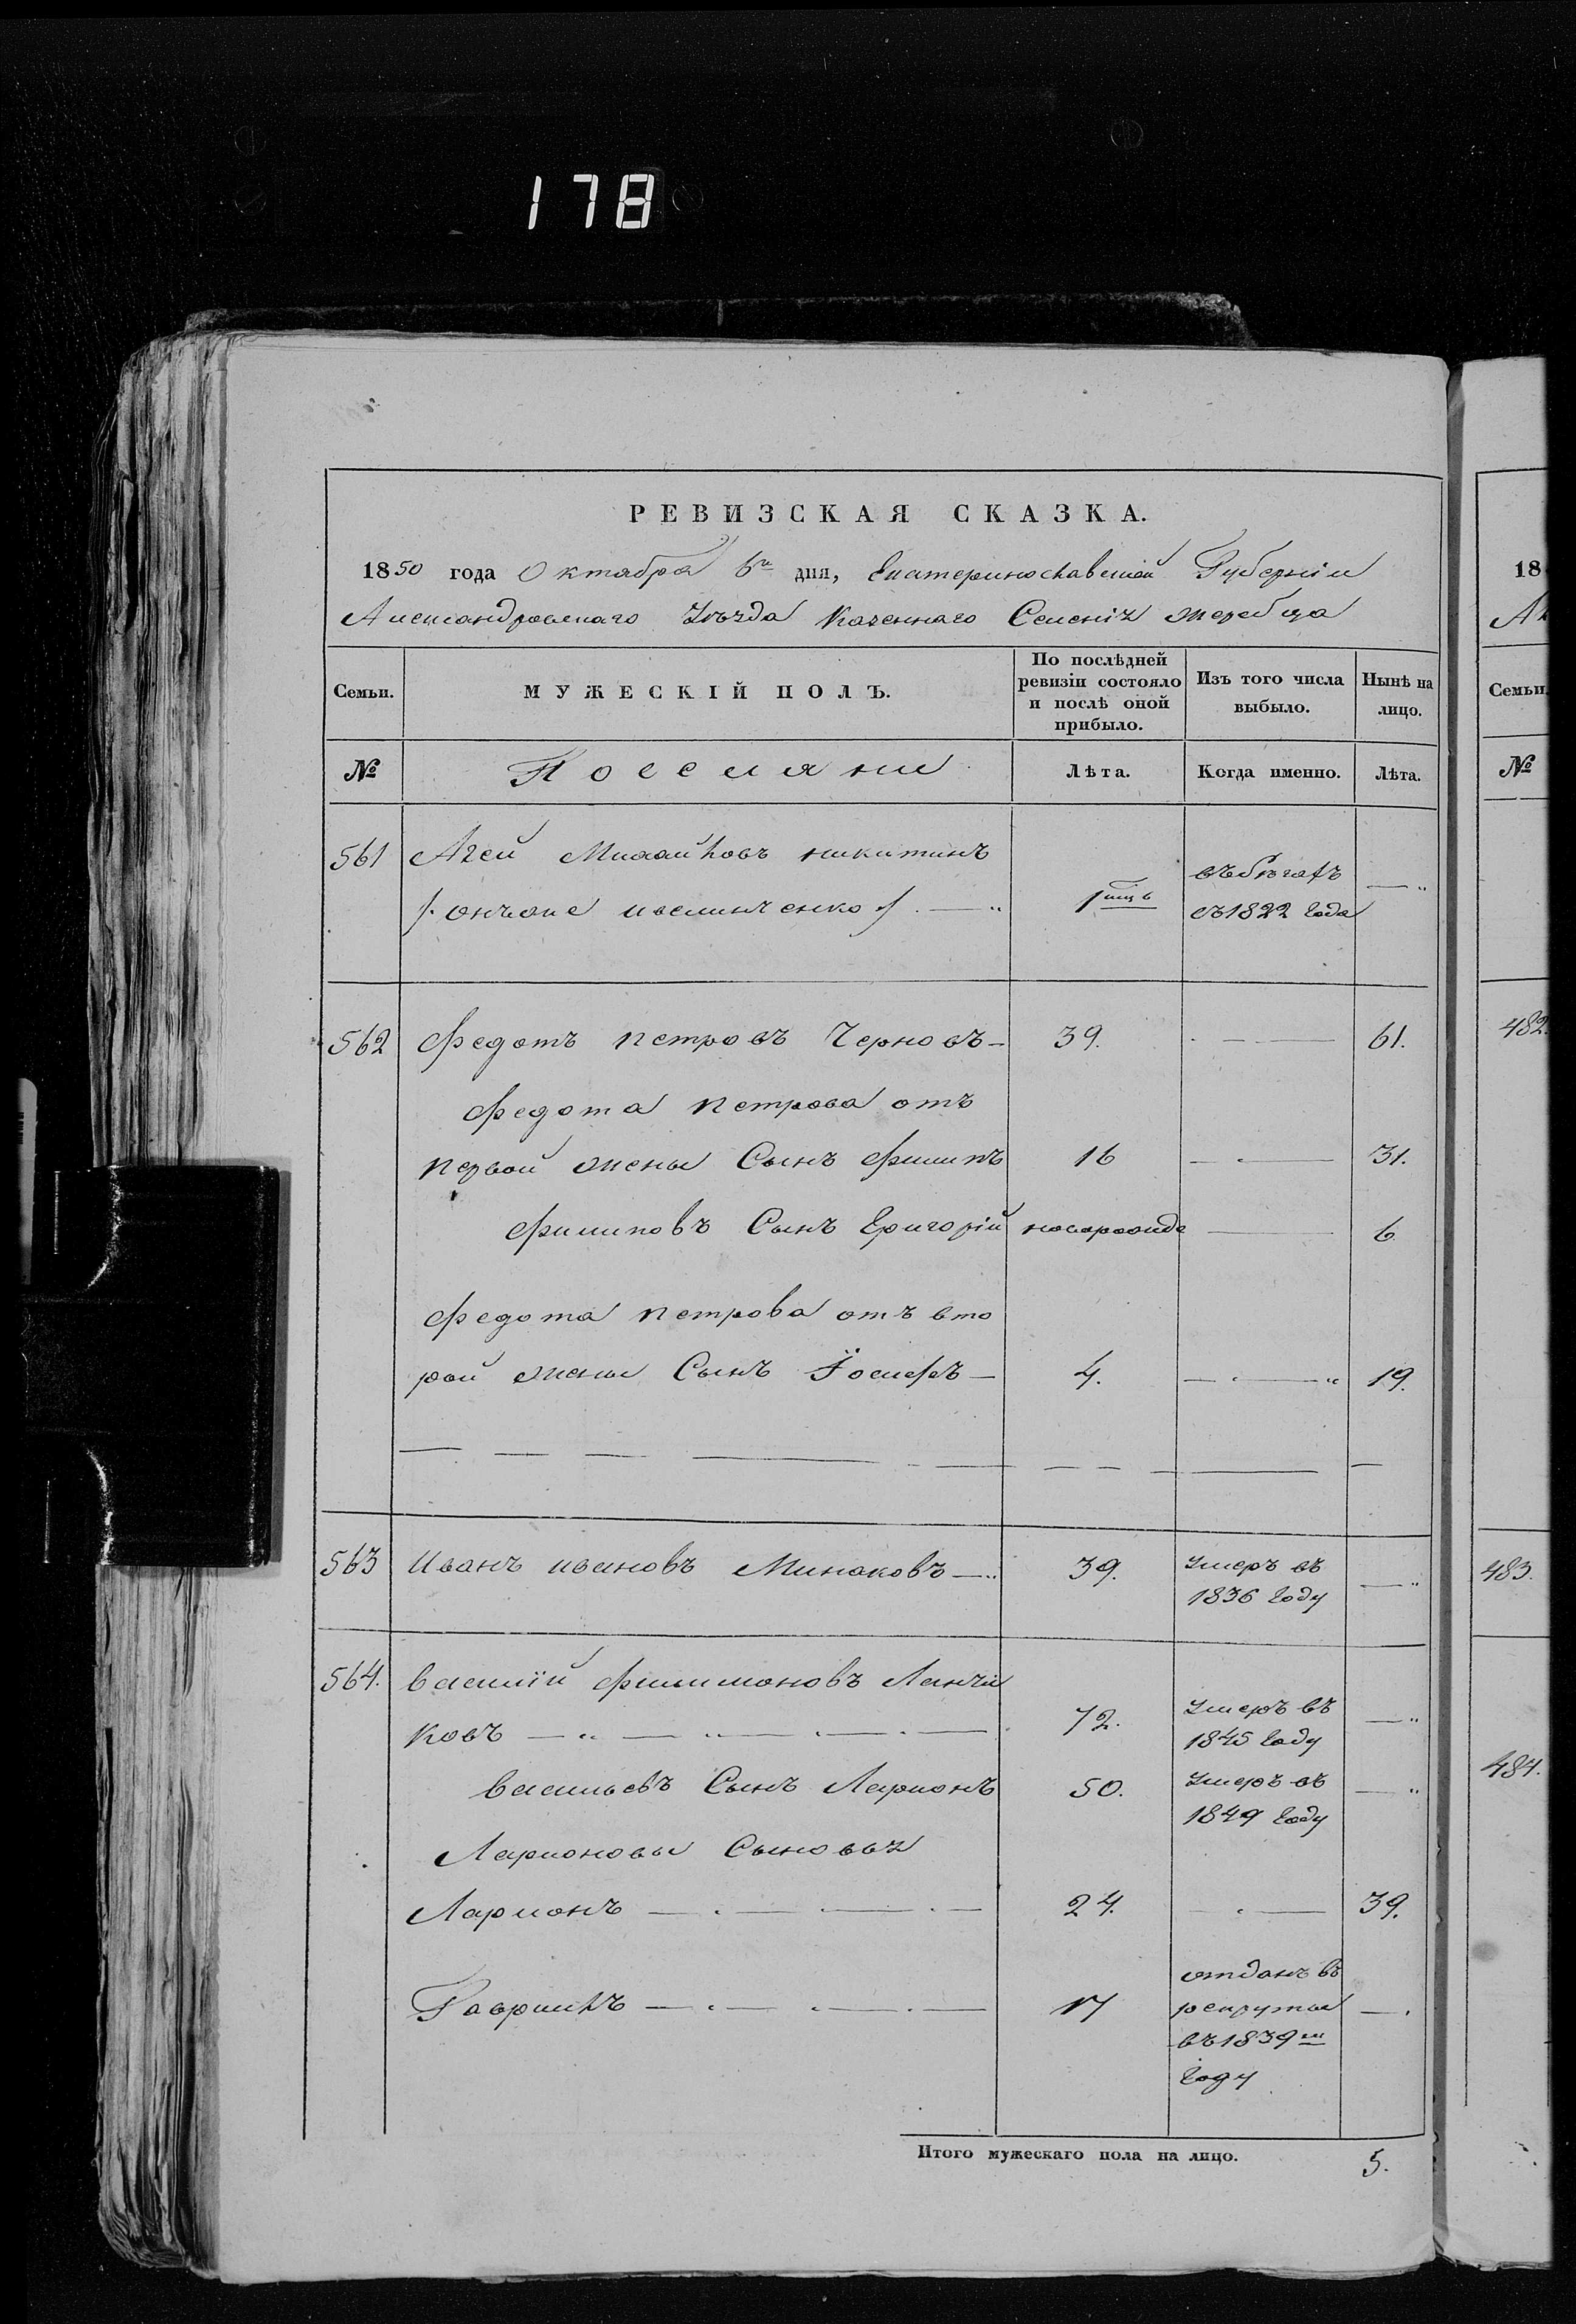 178
РЕВИЗСКАЯ СКАЗКА.
1850 года Октября 6го дня, Екатеринославской Губерніи
Александровскаго Уѣзда Казеннаго Селенія Жеребца
Семьи.
МУЖЕСКІЙ ПОЛЪ.
По послѣдней ревизіи состояло и послѣ оной прибыло.
Изъ того числа выбыло.
Нынѣ на лицо.
№
Посселяни
Лѣта.
Когда именно.
Лѣта.
561 Агей Михайловъ никитинъ
/: онъже :/ — „ 1 въ бѣгахъ съ 1822 Года — „
562 Федотъ петровъ Черновъ — 39. — 61.
Федота петрова отъ
первой жены Сынъ Филипъ 16 — 31.
Филиповъ Сынъ Григорій новорожде — 6
Федота петрова отъ вто
рой жены Сынъ Іосифъ — 4. — „ 19.
563 Иванъ ивановъ Минаковъ — „ 39. Умеръ въ 1836 Году — „
564. василій Филимоновъ Ланчи
ковъ — „ — „ — . — 72. Умеръ въ 1845 Году — „
васильевъ Сынъ Ларионъ 50. Умеръ въ 1849 Году — „
Ларионовы Сыновья
Ларионъ — . — . — . — 24. — 39.
Гаврилъ — . — . — . — 17 отданъ въ рекруты въ 1839м Году — .
Итого мужескаго пола на лицо. 5.
18
А
Семьи.
№
482.
483.
484.